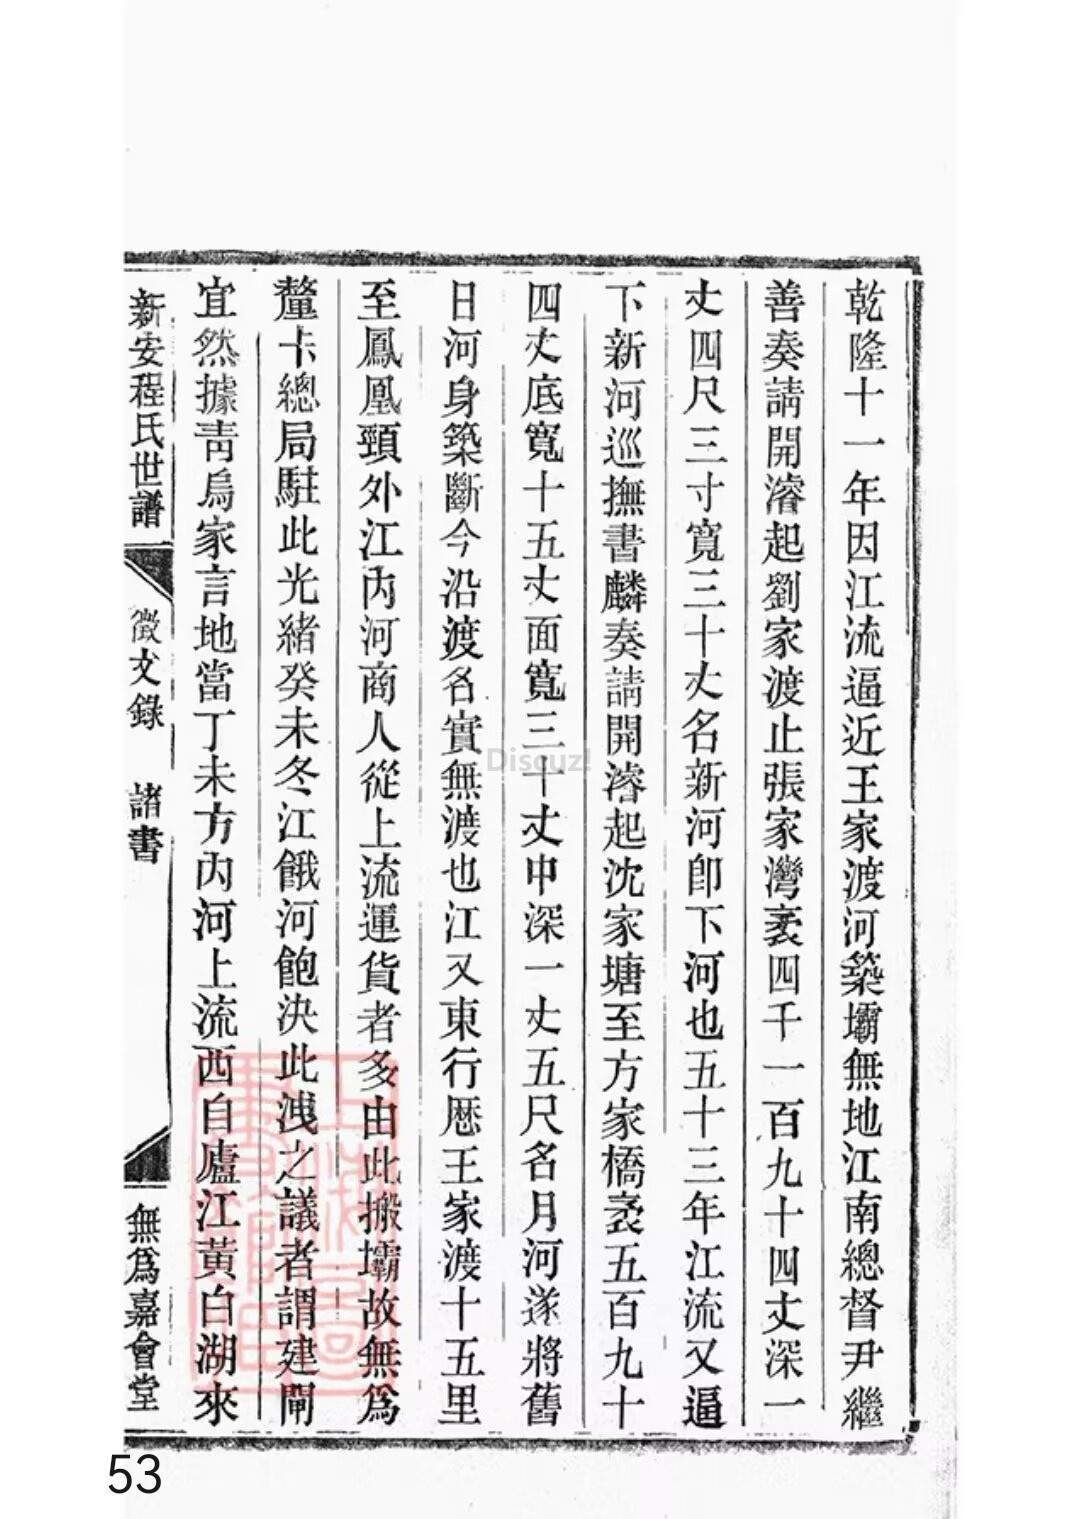 乾隆十一年因江流逼近王家渡河築壩無地江南總督尹繼
善奏請開濬起劉家渡止張家灣袤四千一百九十四丈深一
丈四尺三寸寬三十丈名新河卽下河也五十三年江流又逼
下新河巡撫書麟奏請開濬起沈家塘至方家橋袤五百九十
四丈底寬十五丈面寬三十丈中深一丈五尺名月河遂將舊
日河身築斷今沿渡名實無渡也江又東行歷王家渡十五里
至鳳凰頸外江內河商人從上流運貨者多由此搬壩故無為
釐卡總局駐此光緒癸未冬江餓河飽決此洩之議者謂建閘
宜然據靑烏家言地當丁未方內河上流西自廬江黃白湖來
新安程氏世譜
徵文錄 諸書
無爲嘉會堂
Discuz!
53